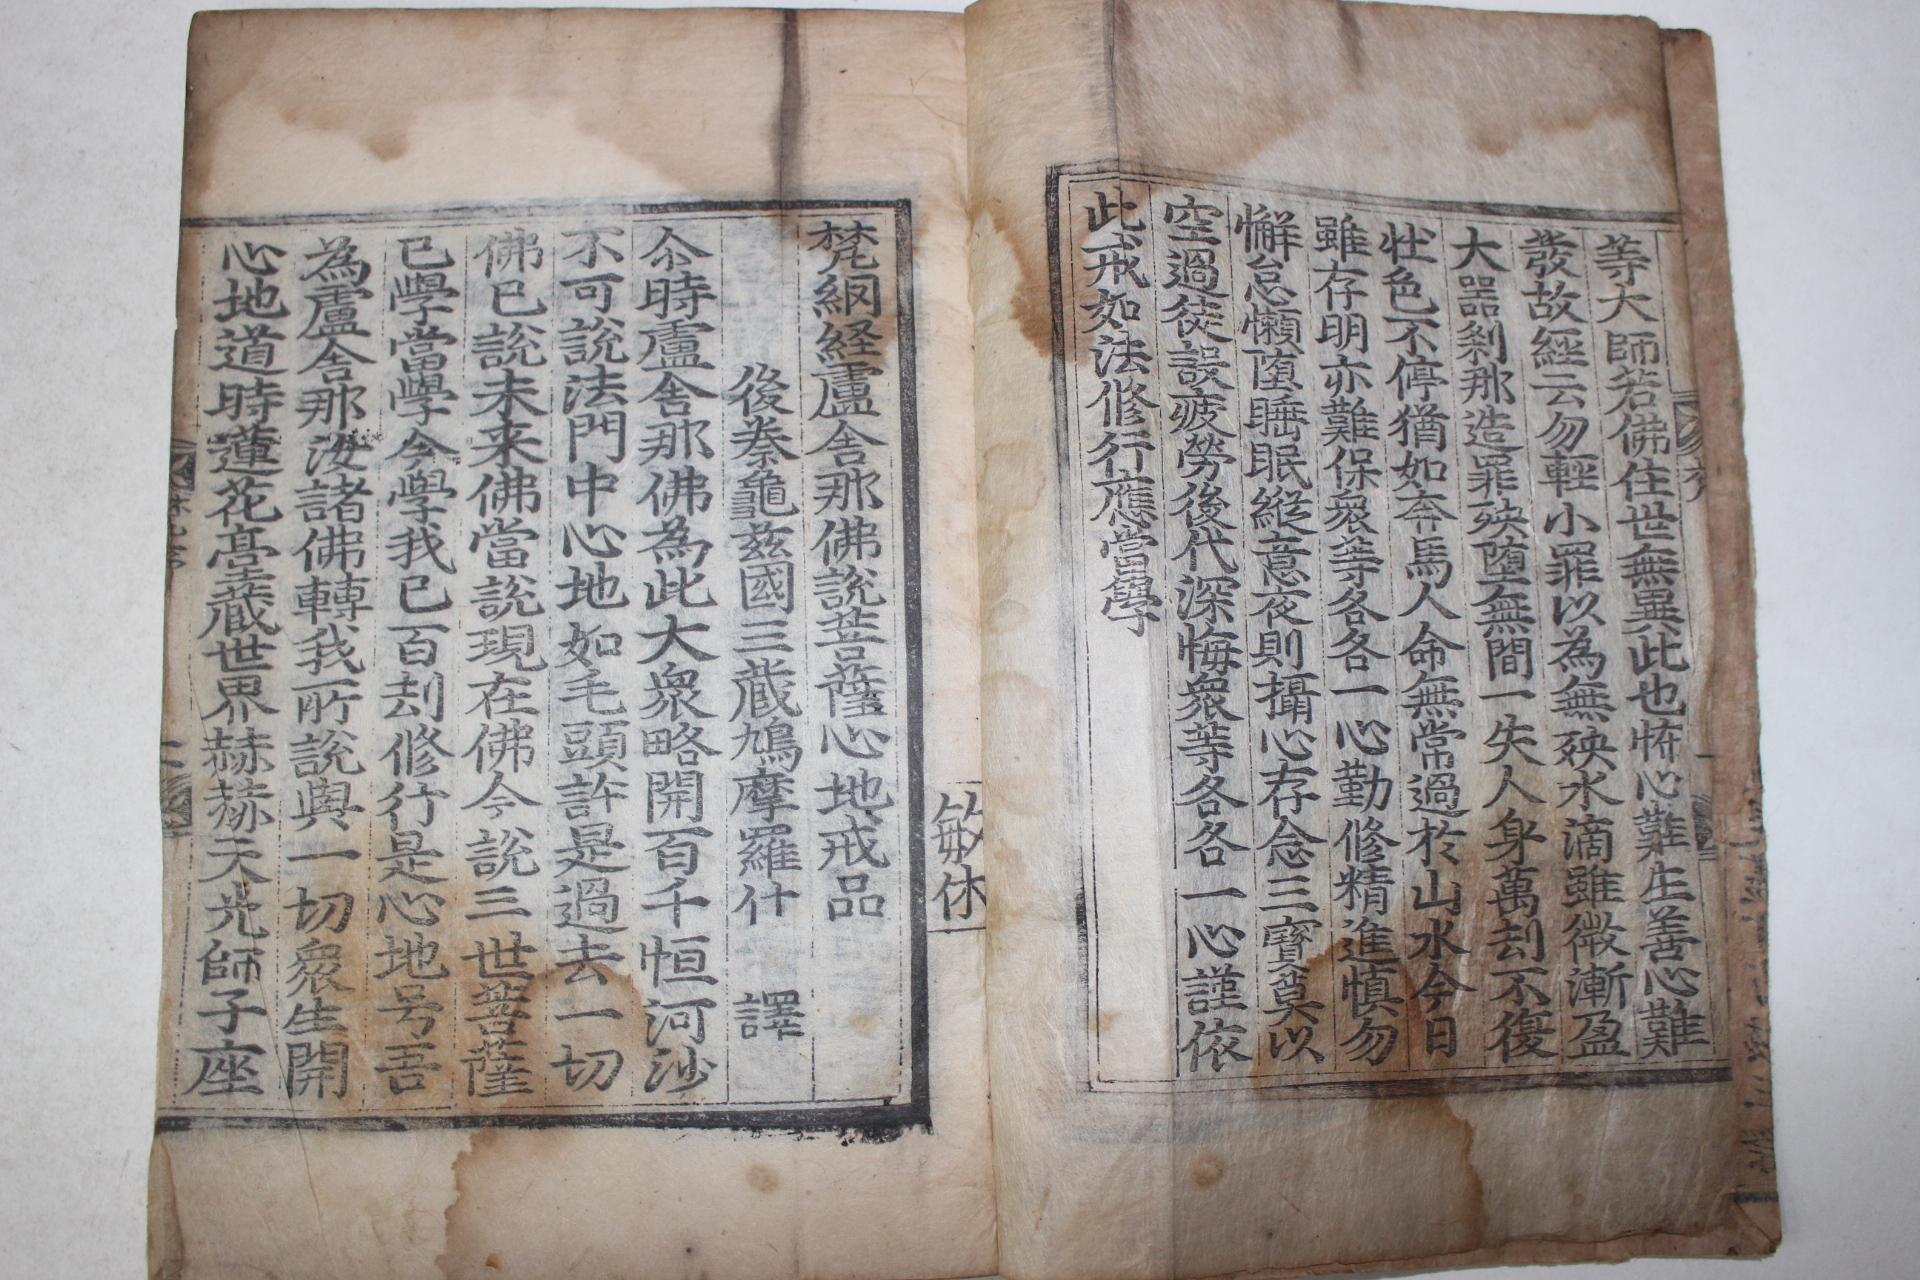 等大師若佛住世無異此也怖心難生善心難
發故經云勿輕小罪以為無殃水滴雖微漸盈
大器刹那造罪殃墮無間一失人身萬刼不復
壮色不停猶如奔馬人命無常過於山水今日
雖存明亦難保衆等各各一心勤修精進慎勿
懈怠懶堕睡眠縱意夜則攝心存念三寶莫以
空過徒設疲勞後代深悔衆等各各一心謹依
此戒如法修行應當學
敏休
梵網経盧舍那佛說菩薩心地戒品
後秦龜茲國三蔵鳩摩羅什 譯
尒時盧舍那佛為此大衆略開百千恒河沙
不可說法門中心地如毛頭許是過去一切
佛已說未来佛當說現在佛今說三世菩薩
已學當學今學我已百刼修行是心地号吾
為盧舍那汝諸佛轉我所說與一切衆生開
心地道時蓮花䑓蔵世界赫赫天光師子座